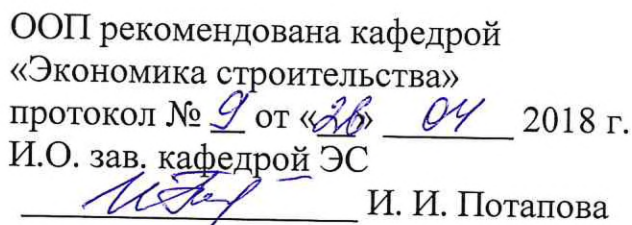 ООП рекомендована кафедрой
«Экономика строительства»
протокол № 9 от «26» 04 2018 г.
И.О. зав. кафедрой ЭС
И. И. Потапова